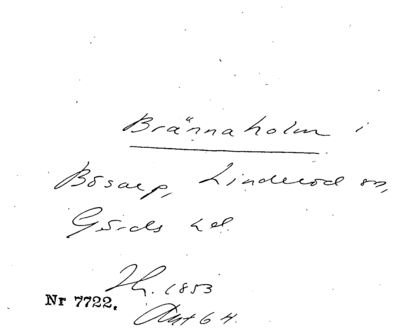 Brännaholm i
Bösarp, Linderöd sn,
Gärds hd.
Hg. 1853
Nr 7722.
Ant 64.